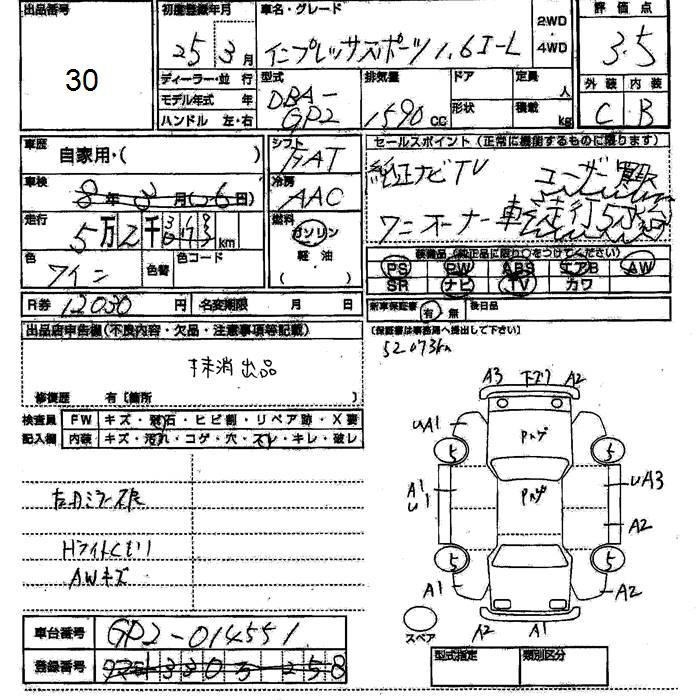 出品番号
30
初度登録年月
25年3月
車名・グレード
インプレッサスポーツ 1.6I-L
2WD
・
4WD
評価点
3.5
ディーラー・並行
モデル年式 年
ハンドル 左・右
型式
DBA-
GP2
排気量
1590 CC
ドア
形状
定員
人
積載
kg
外装 内装
C B
車歴
自家用・( )
シフト
FAT
セールスポイント (正常に機能するものに限ります)
純正ナビTV
ユーザー買取
ワンオーナー車
車検
8年3月(26日)
冷房
AAC
走行
5万2千 km
燃料
ガソリン
軽油
( )
色
ワイン
色替
色コード
装備品(純正品に限り○をつけてください)
PS PW ABS エアB AW
SR ナビ TV カワ
R券 12030 円
名変期限 月 日
新車保証書 有 無
後日品
(保証書は事務局へ提出して下さい)
52073km
出品店申告欄(不良内容・欠品・注意事項等記載)
抹消出品
修復歴 有〔箇所 〕
検査員
記入欄
FW キズ・飛石・ヒビ割・リペア跡・X要
内装 キズ・汚れ・コゲ・穴・スレ・キレ・破レ
Hライトくもり
AWキズ
A3 下ズリ A2
UA1
5
5
A1
U1
UA3
A2
5
5
A1
A2
スペア
A2 A1
車台番号 GP2-014551
登録番号
型式指定
類別区分